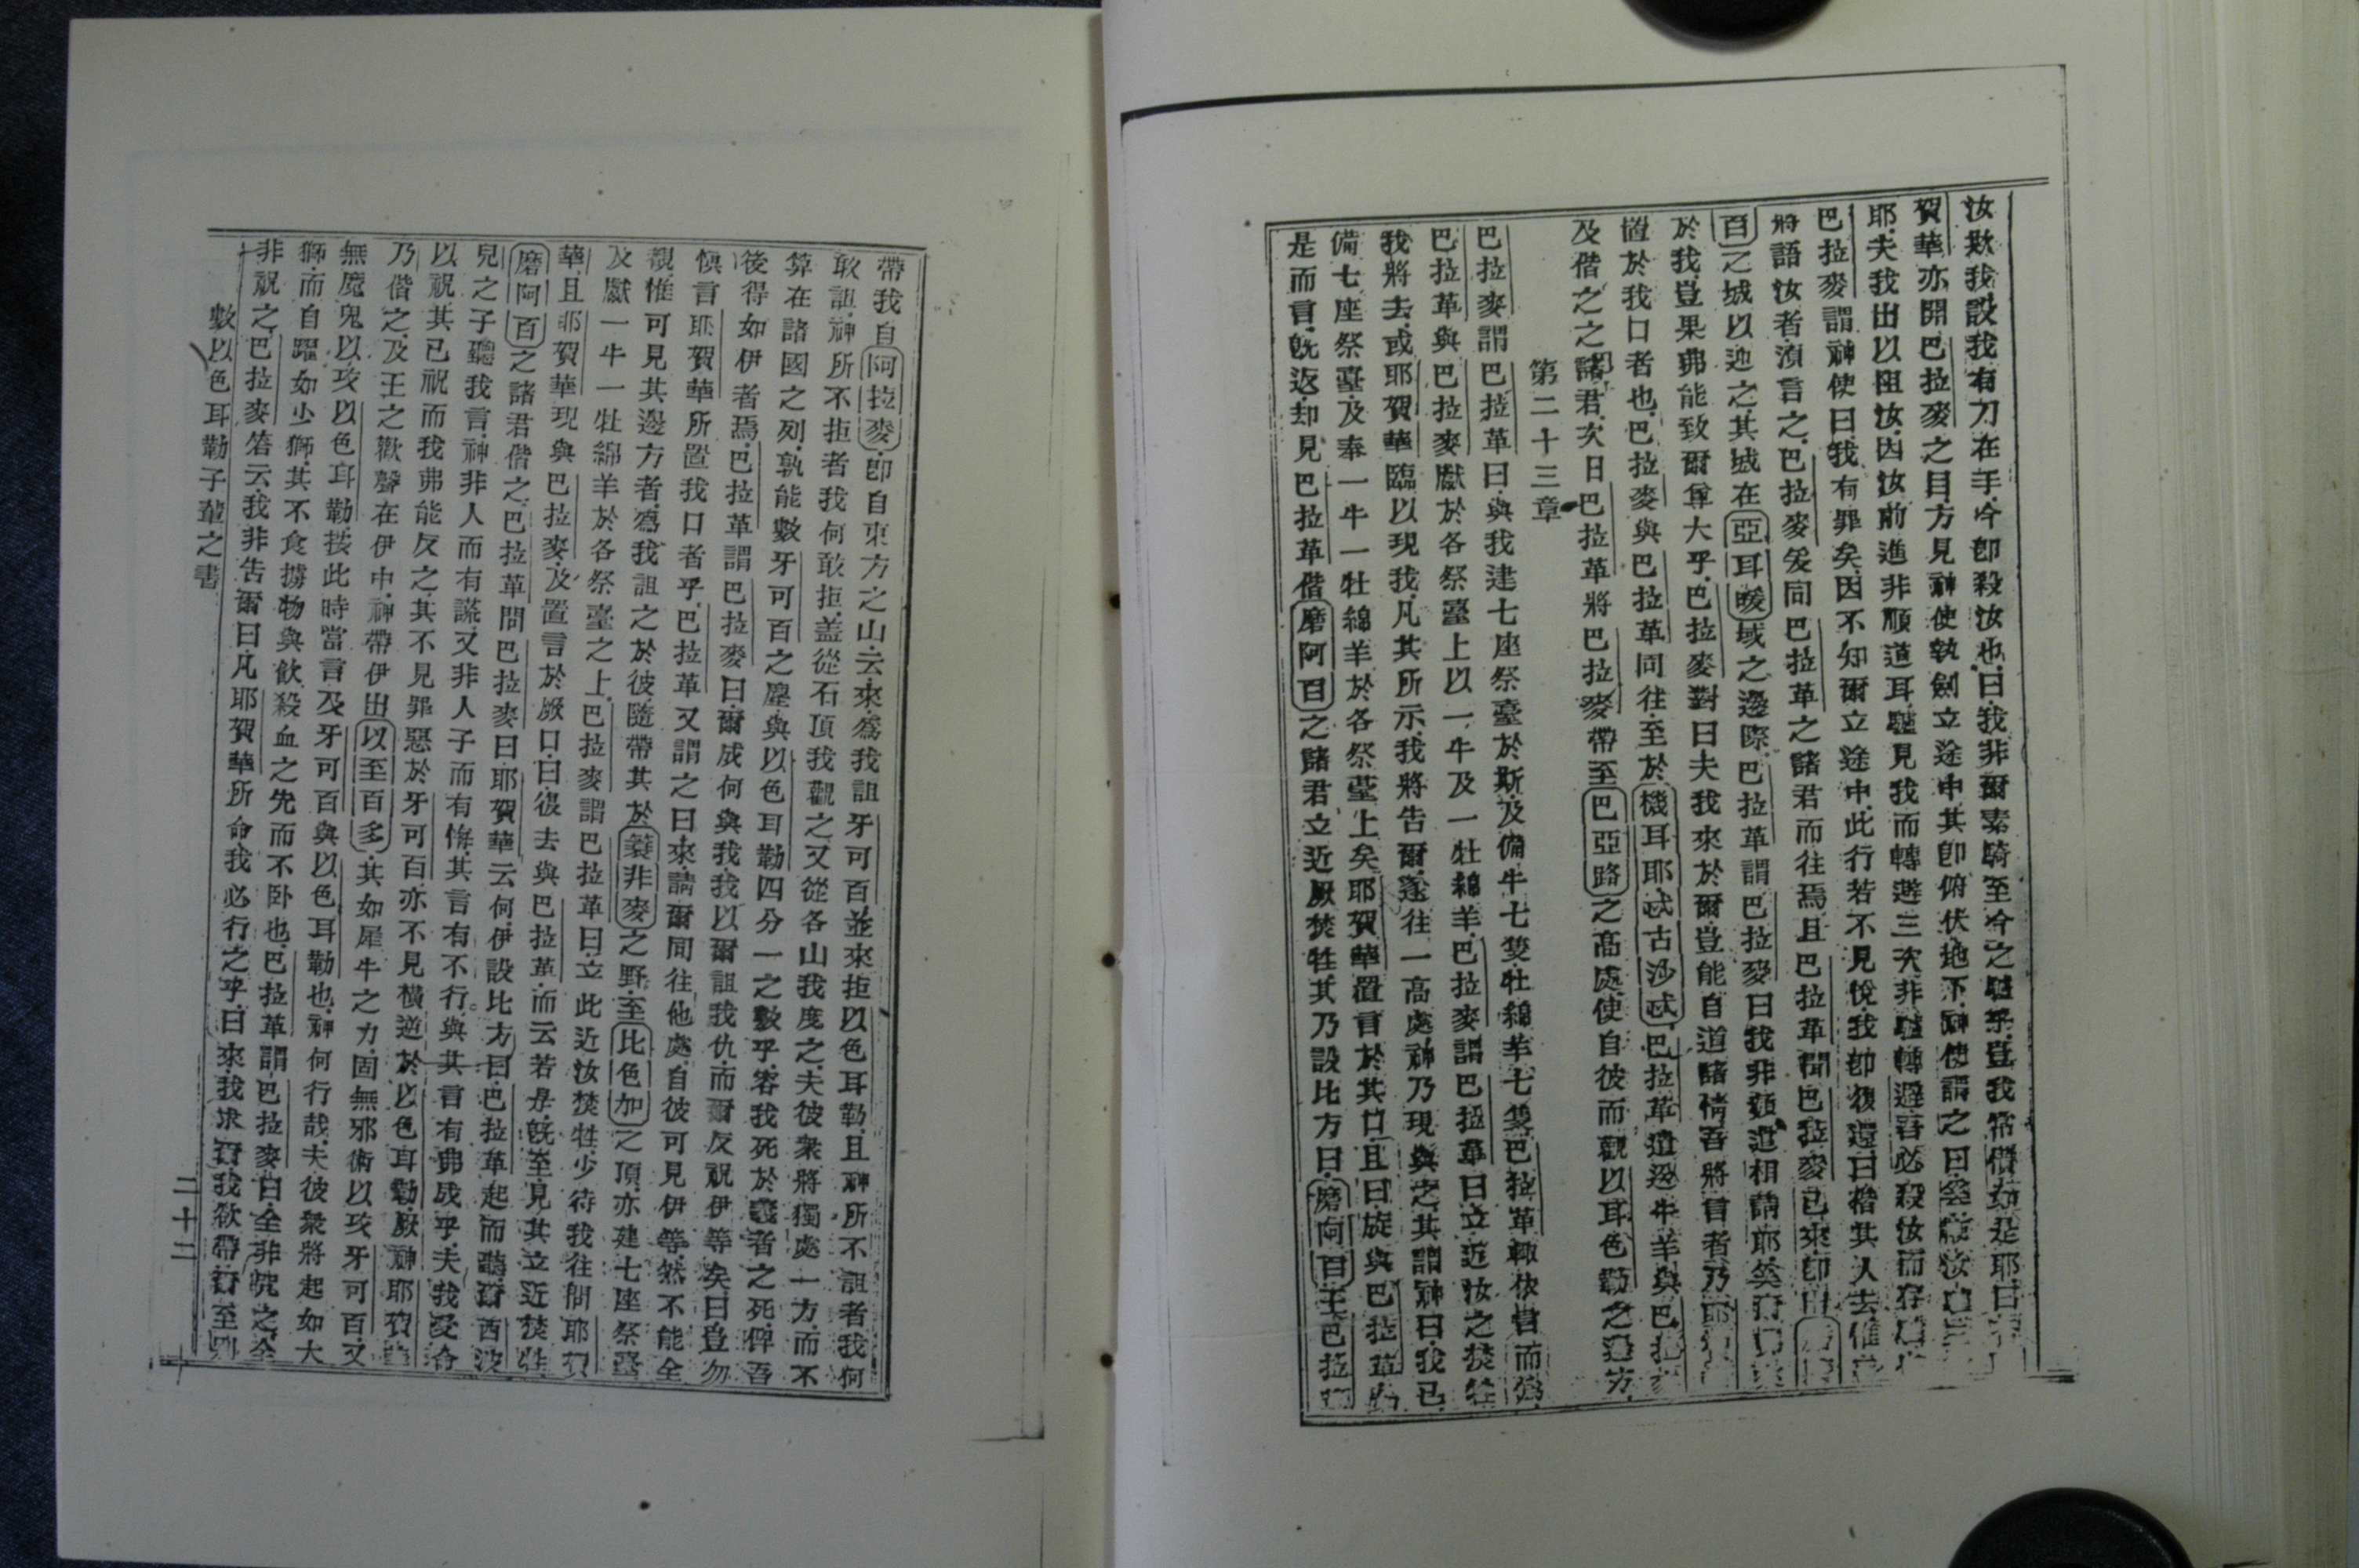 汝欺我設我有刀在手今卽殺汝也曰我非爾素騎至今之驢乎豈我常慣如是耶曰
賀華亦開巴拉麥之目方見神使執劍立途中其卽俯伏地下神使謂之曰
耶夫我出以阻汝因汝前進非順道耳驢見我而轉避三次非驢轉避吾必殺汝而存
巴拉麥謂神使曰我有罪矣因不知爾立途中此行若不見悅我卽復還曰偕其人去惟
將語汝者須言之巴拉麥爰同巴拉革之諸君而往焉且巴拉革聞巴拉麥已來卽出
百之城以迎之其城在亞耳嗳域之邊際巴拉革謂巴拉麥曰我非頻遣相請耶
於我豈果弗能致爾尊大乎巴拉麥對曰夫我來於爾豈能自道諸情吾將言者乃耶
置於我口者也巴拉麥與巴拉革同往至於機耳耶忒古沙忒巴拉革遣送牛羊與巴拉
及偕之之諸君次日巴拉革將巴拉麥帶至巴亞路之高處使自彼而觀以耳色勒之邊方
第二十三章
巴拉麥謂巴拉革曰與我建七座祭臺於斯及備牛七隻牡綿羊七隻巴拉革輒依言而爲
巴拉革與巴拉麥獻於各祭臺上以一牛及一牡綿羊巴拉麥謂巴拉革曰立近汝之焚牲
我將去或耶賀華臨以現我凡其所示我將告爾遂往一高處神乃現與之其謂神曰我已
備七座祭臺及奉一牛一牡綿羊於各祭臺上矣耶賀華置言於其口且曰旋與巴拉革如
是而言旣返却見巴拉革偕磨阿百之諸君立近厥焚牲其乃設比方曰磨阿百王巴拉革
帶我自阿拉麥卽自東方之山云來爲我詛牙可百並來拒以色耳勒且神所不詛者我何
敢詛神所不拒者我何敢拒盖從石頂我觀之又從各山我度之夫彼衆將獨處一方而不
算在諸國之列孰能數牙可百之塵與以色耳勒四分一之數乎容我死於義者之死俾吾
後得如伊者焉巴拉革謂巴拉麥曰爾成何與我我以爾詛我仇而爾反祝伊等矣曰豈勿
愼言耶賀華所置我口者乎巴拉革又謂之曰來請爾同往他處自彼可見伊等然不能全
覩惟可見其邊方者爲我詛之於彼隨帶其於䥥非麥之野至比色加之頂亦建七座祭臺
及獻一牛一牡綿羊於各祭臺之上巴拉麥謂巴拉革曰立此近汝焚牲少待我往問耶賀
華且耶賀華現與巴拉麥及置言於厥口曰復去與巴拉革而云若是旣至見其立近焚牲
磨阿百之諸君偕之巴拉革問巴拉麥曰耶賀華云何伊設比方曰巴拉革起而聽爾西波
兒之子聽我言神非人而有謊又非人子而有悔其言有不行與其言有弗成乎夫我受命
以祝其已祝而我弗能反之其不見罪惡於牙可百亦不見橫逆於以色耳勒厥神耶賀華
乃偕之及王之歡聲在伊中神帶伊出以至百多其如犀牛之力固無邪術以攻牙可百又
無魔鬼以攻以色耳勒按此時當言及牙可百與以色耳勒也神何行哉夫彼衆將起如大
獅而自躍如少獅其不食擄物與飲殺血之先而不卧也巴拉革謂巴拉麥曰全非詛之全
非祝之巴拉麥答云我非告爾曰凡耶賀華所命我必行之乎曰來我求爾我欲帶爾至別
數以色耳勒子輩之書 二十二